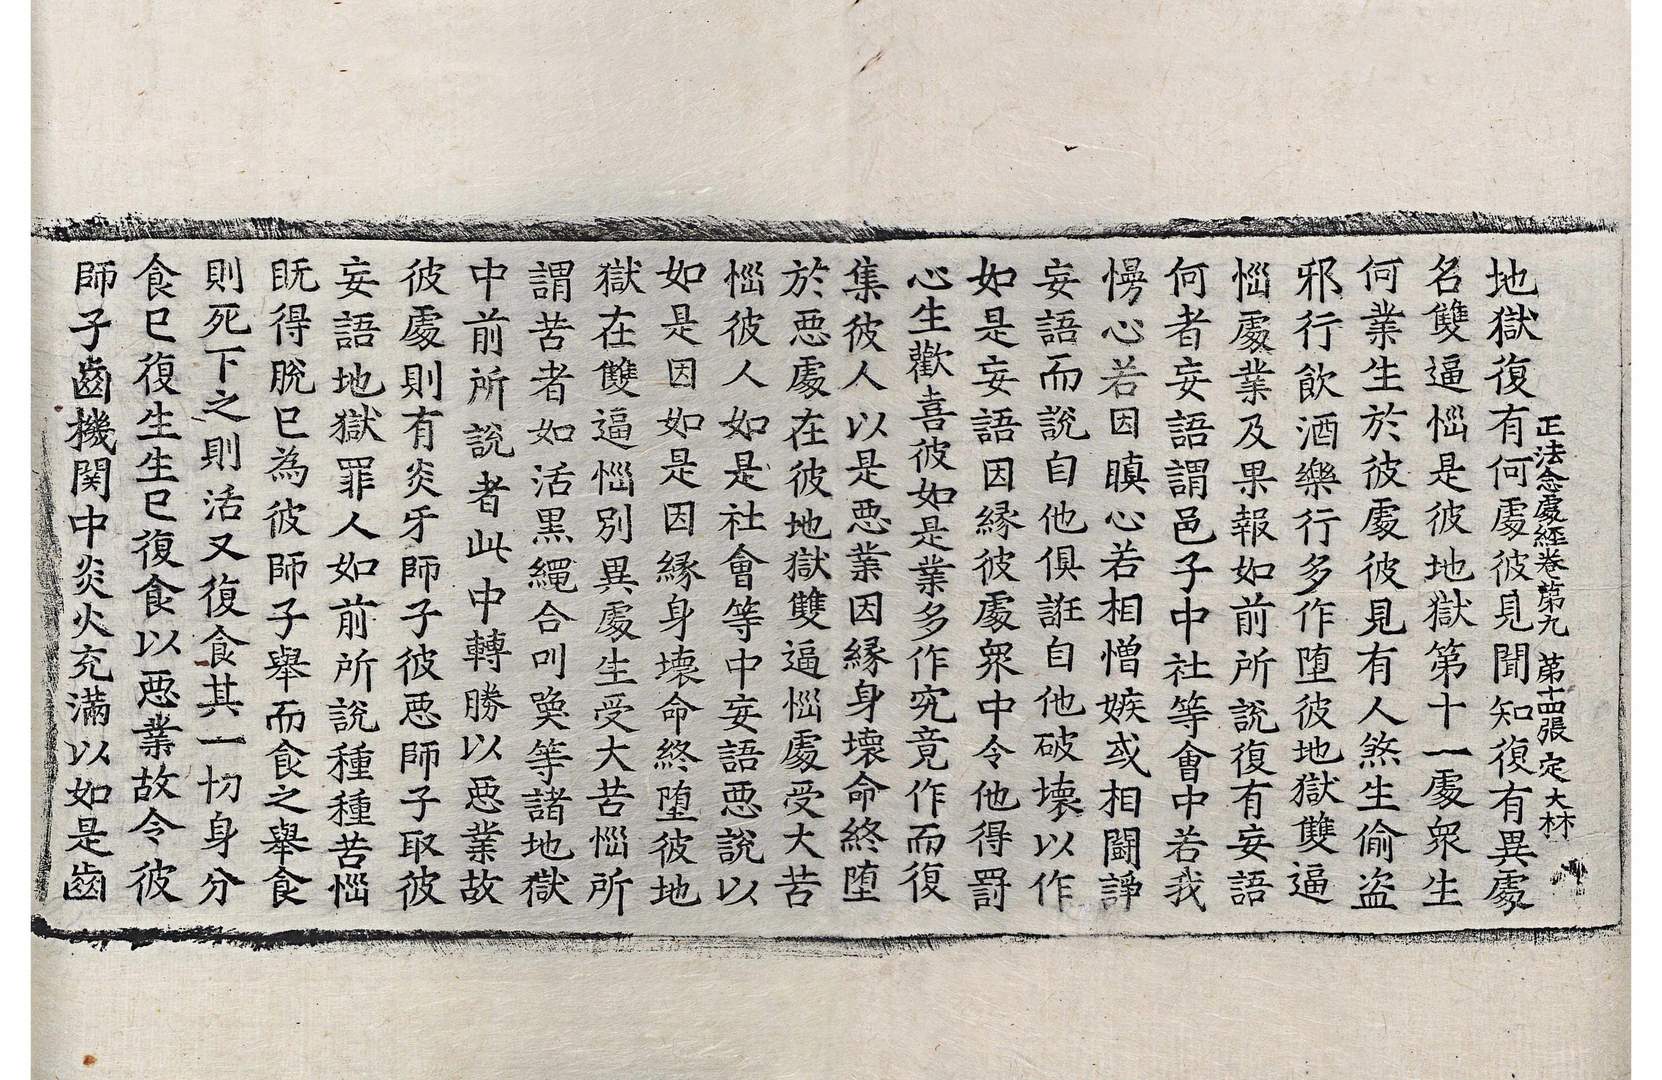 正法念處經卷第九 第十四張 定 大林
地獄復有何處彼見聞知復有異處
名雙逼惱是彼地獄第十一處衆生
何業生於彼處彼見有人煞生偷盜
邪行飲酒樂行多作墮彼地獄雙逼
惱處業及果報如前所說復有妄語
何者妄語謂邑子中社等會中若我
慢心若因瞋心若相憎嫉或相鬪諍
妄語而說自他俱誑自他破壞以作
如是妄語因緣彼處衆中令他得罸
心生歡喜彼如是業多作究竟作而復
集彼人以是惡業因緣身壞命終墮
於惡處在彼地獄雙逼惱處受大苦
惱彼人如是社會等中妄語惡說以
如是因如是因緣身壞命終墮彼地
獄在雙逼惱別異處生受大苦惱所
謂苦者如活黑繩合叫喚等諸地獄
中前所說者此中轉勝以惡業故
彼處則有炎牙師子彼惡師子取彼
妄語地獄罪人如前所說種種苦惱
既得脫已為彼師子舉而食之舉食
則死下之則活又復食其一切身分
食已復生生已復食以惡業故令彼
師子齒機関中炎火充滿以如是齒